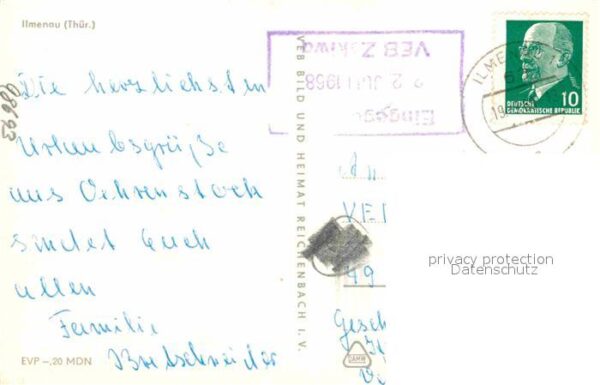 Ilmenau (Thür.)
Die herzlichsten
Urlaubsgrüße
aus Oehrenstock
sendet Euch
allen
Familie
Bretschneider
EVP –,20 MDN
VEB BILD UND HEIMAT REICHENBACH I. V.
VEB
22. JUN 1968
Einge
ILME
19
DEUTSCHE
DEMOKRATISCHE REPUBLIK
10
An
VE
49
Gesch
privacy protection
Datenschutz